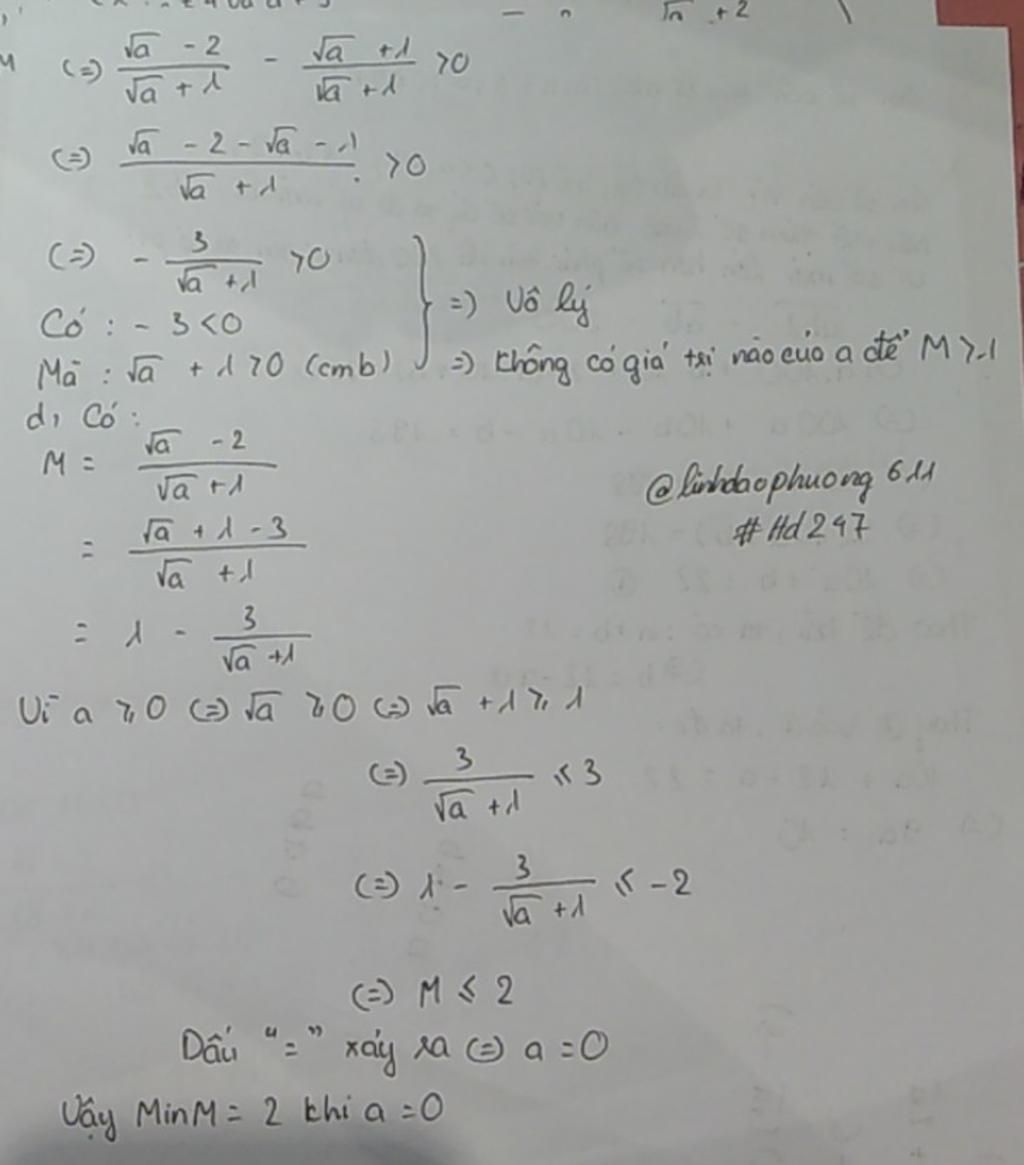 √n + 2
(=) (√a - 2)/(√a + 1) - (√a + 1)/(√a + 1) > 0
(=) (√a - 2 - √a - 1)/(√a + 1) > 0
(=) - 3/(√a + 1) > 0
Có : - 3 < 0
Mà : √a + 1 > 0 (cmb)
=) Vô lý
=) không có giá trị nào của a để M > 1
d, Có :
M = (√a - 2)/(√a + 1)
= (√a + 1 - 3)/(√a + 1)
= 1 - 3/(√a + 1)
@linhdaophuong611
#Hd247
Vì a ≥ 0 (=) √a ≥ 0 (=) √a + 1 ≥ 1
(=) 3/(√a + 1) ≤ 3
(=) 1 - 3/(√a + 1) ≤ -2
(=) M ≤ 2
Dấu "=" xảy ra (=) a = 0
Vậy MinM = 2 khi a = 0